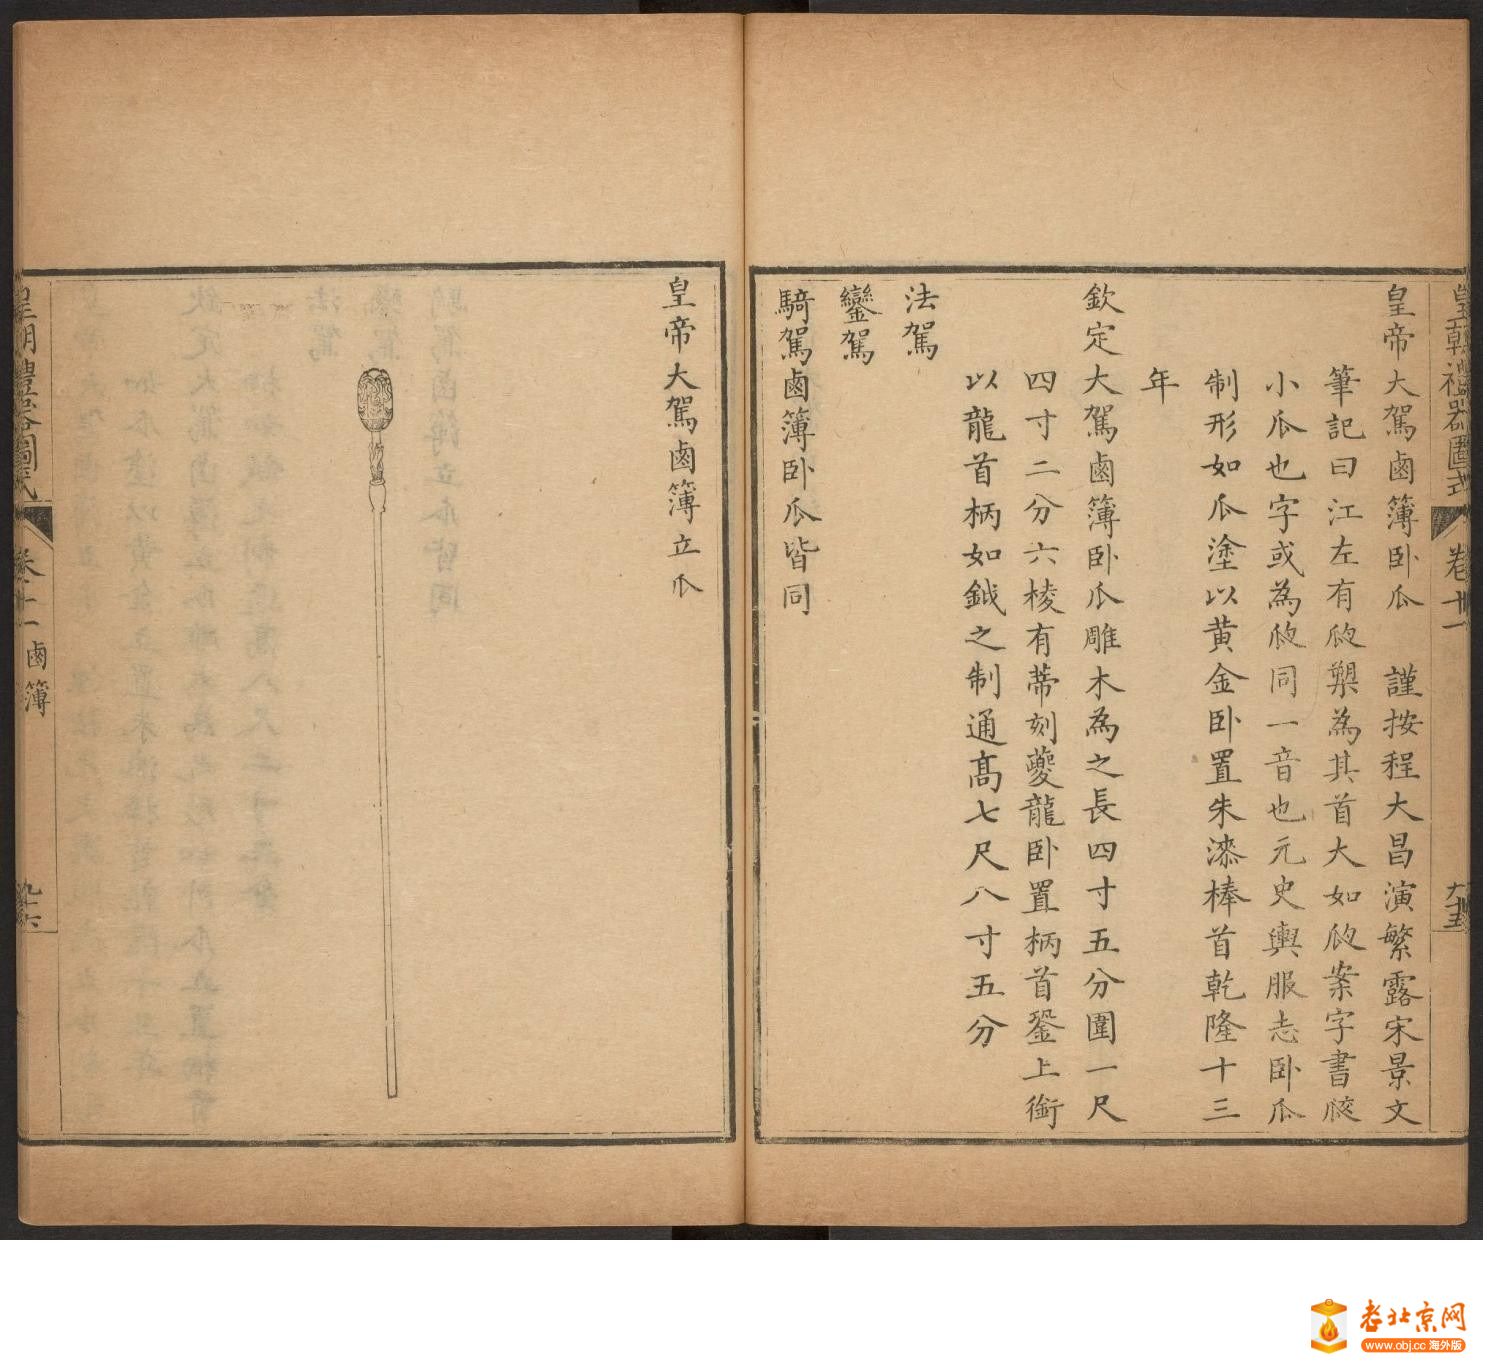 皇朝禮器圖式
卷十一
九十五
皇帝大駕鹵簿卧瓜 謹按程大昌演繁露宋景文
筆記曰江左有㼎槊為其首大如㼎案字書㼎
小瓜也字或為㼎同一音也元史輿服志卧瓜
制形如瓜塗以黃金卧置朱漆棒首乾隆十三
年
欽定大駕鹵簿卧瓜雕木為之長四寸五分圍一尺
四寸二分六棱有蒂刻夔龍卧置柄首銎上銜
以龍首柄如鉞之制通高七尺八寸五分
法駕
鑾駕
騎駕鹵簿卧瓜皆同
皇帝大駕鹵簿立瓜
皇朝禮器圖式
卷十一 鹵簿
九十六
老北京网
www.obj.cc 海外版